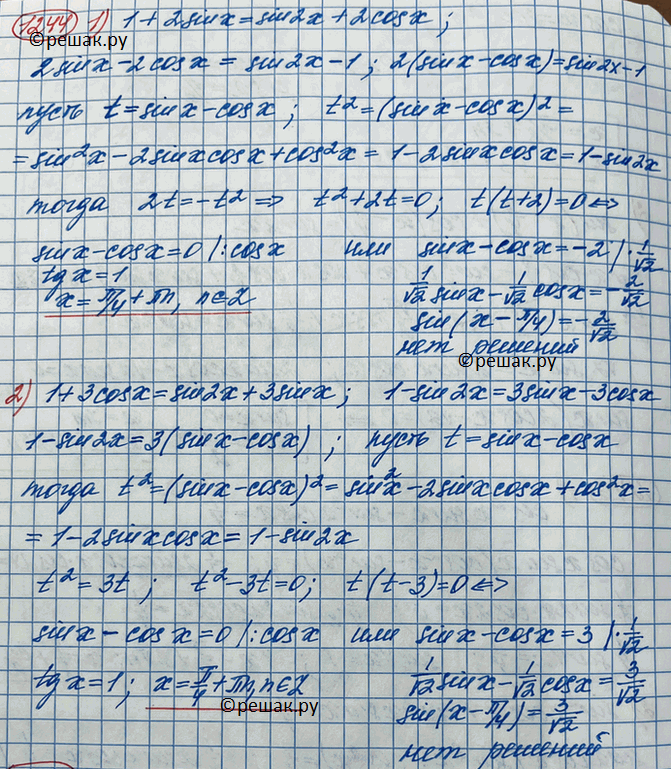 1244 1) 1+2sinx=sin2x+2cosx;
©решак.ру
2sinx-2cosx = sin2x-1; 2(sinx-cosx)=sin2x-1
пусть t=sinx-cosx; t²=(sinx-cosx)²=
=sin²x-2sinxcosx+cos²x= 1-2sinxcosx=1-sin2x
тогда 2t=-t² ⇒ t²+2t=0; t(t+2)=0 ⇔
sinx-cosx=0 |:cosx или sinx-cosx=-2 |·1/√2
tgx=1 1/√2 sinx - 1/√2 cosx = -2/√2
x=π/4+πn, n∈Z sin(x-π/4)=-2/√2
нет решений
©решак.ру
2) 1+3cosx=sin2x+3sinx; 1-sin2x=3sinx-3cosx
1-sin2x=3(sinx-cosx); пусть t=sinx-cosx
тогда t²=(sinx-cosx)²=sin²x-2sinxcosx+cos²x=
=1-2sinxcosx=1-sin2x
t²=3t; t²-3t=0; t(t-3)=0 ⇔
sinx-cosx=0 |:cosx или sinx-cosx=3 |·1/√2
tgx=1; x=π/4+πn, n∈Z 1/√2 sinx - 1/√2 cosx = 3/√2
©решак.ру sin(x-π/4)=3/√2
нет решений